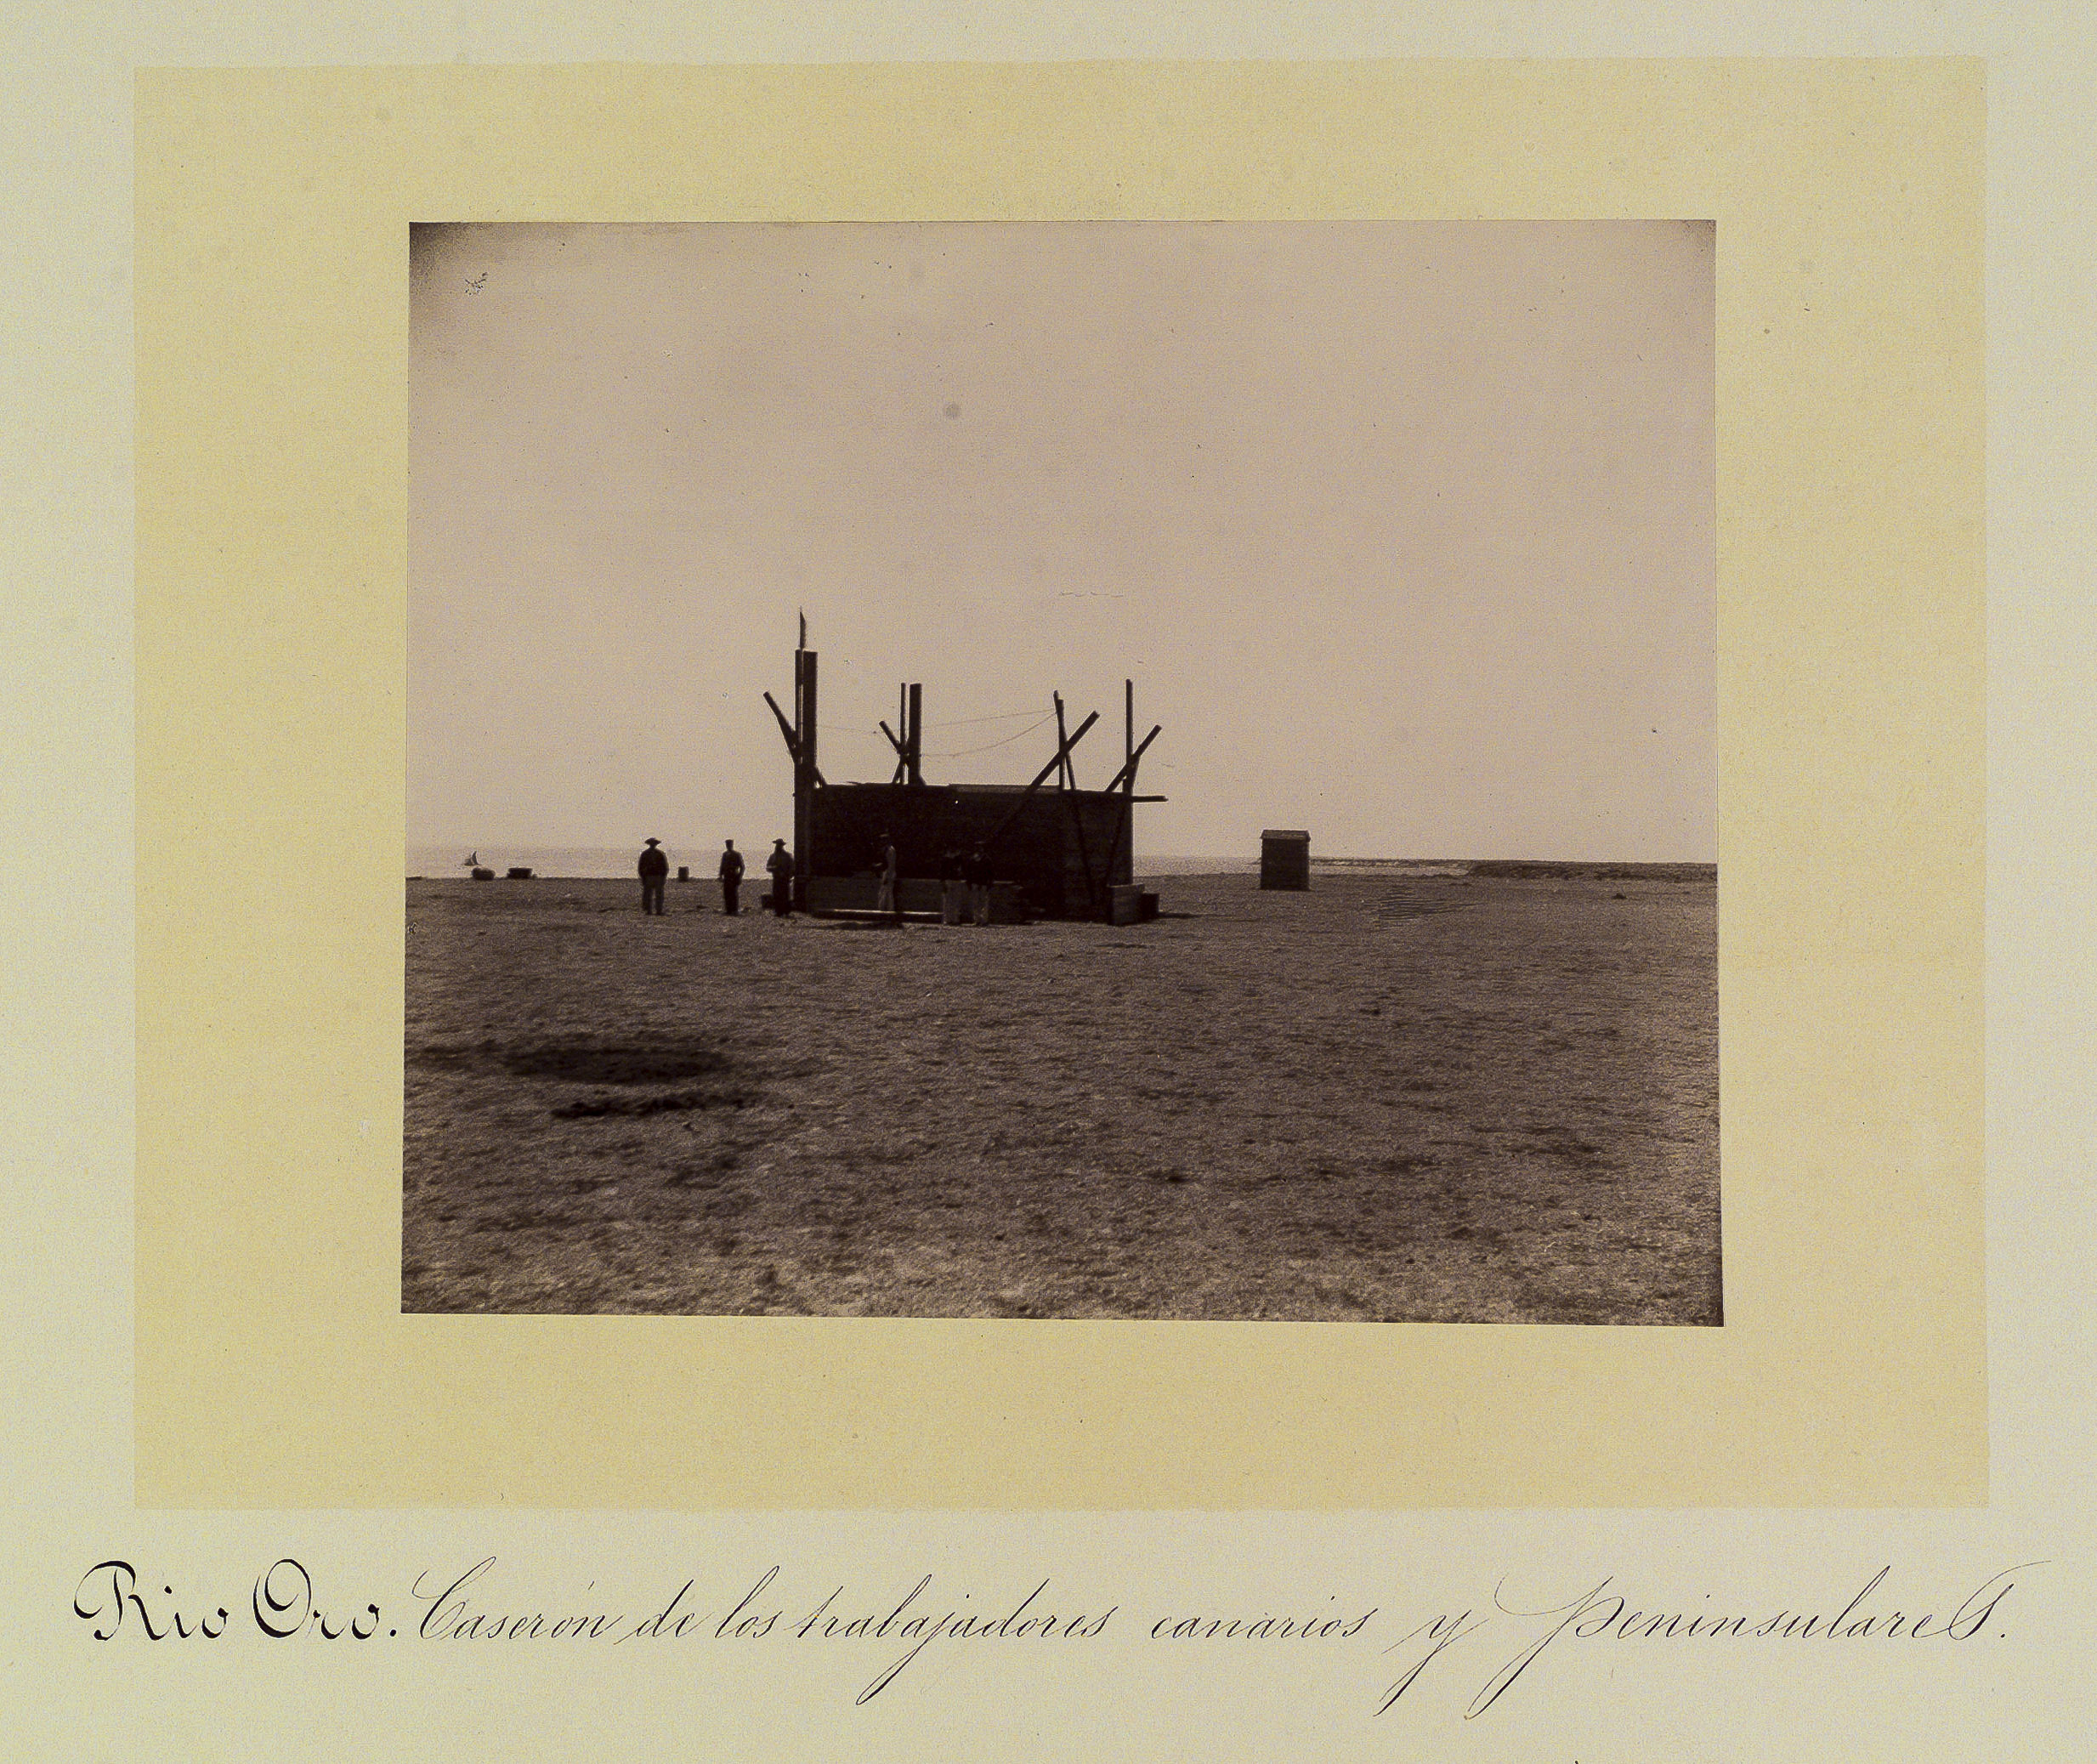 Rio Oro. Caserón de los trabajadores canarios y peninsulares.